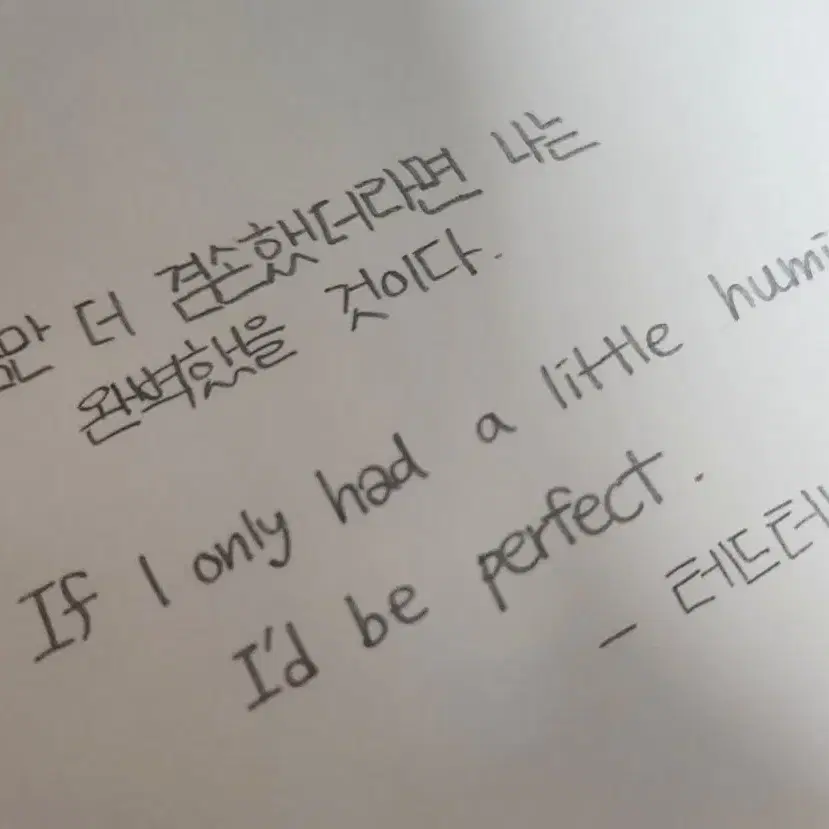 만 더 겸손했더라면 나는
완벽했을 것이다.
If I only had a little
I'd be perfect.
- 테드터